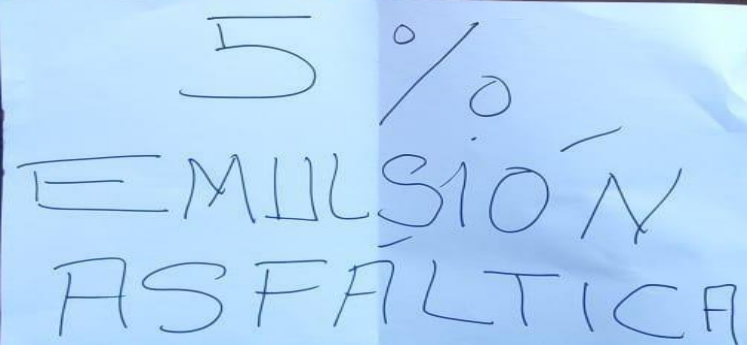 5 %
EMULSIÓN
ASFÁLTICA